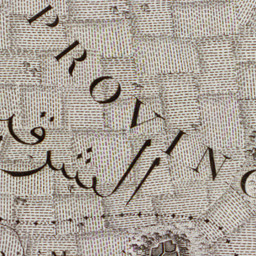 PROVINC
الشرق